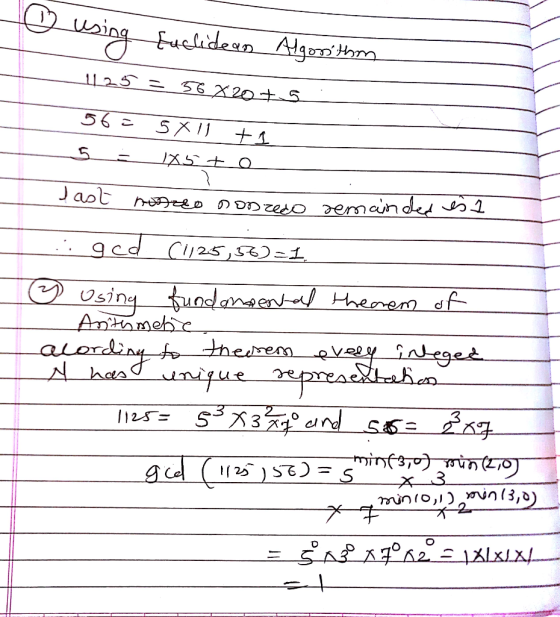 1) Using Euclidean Algorithm
1125 = 56 × 20 + 5
56 = 5 × 11 + 1
5 = 1×5 + 0
last nonzero remainder is 1
∴ gcd (1125, 56) = 1
2) Using fundamental theorem of
Arithmetic.
acording to theorem every integer
N has unique representation
1125 = 5³ × 3² × 7⁰ and 56 = 2³ × 7
gcd (1125, 56) = 5^min(3,0) × 3^min(2,0)
× 7^min(0,1) × 2^min(3,0)
= 5⁰ × 3⁰ × 7⁰ × 2⁰ = 1×1×1×1
= 1